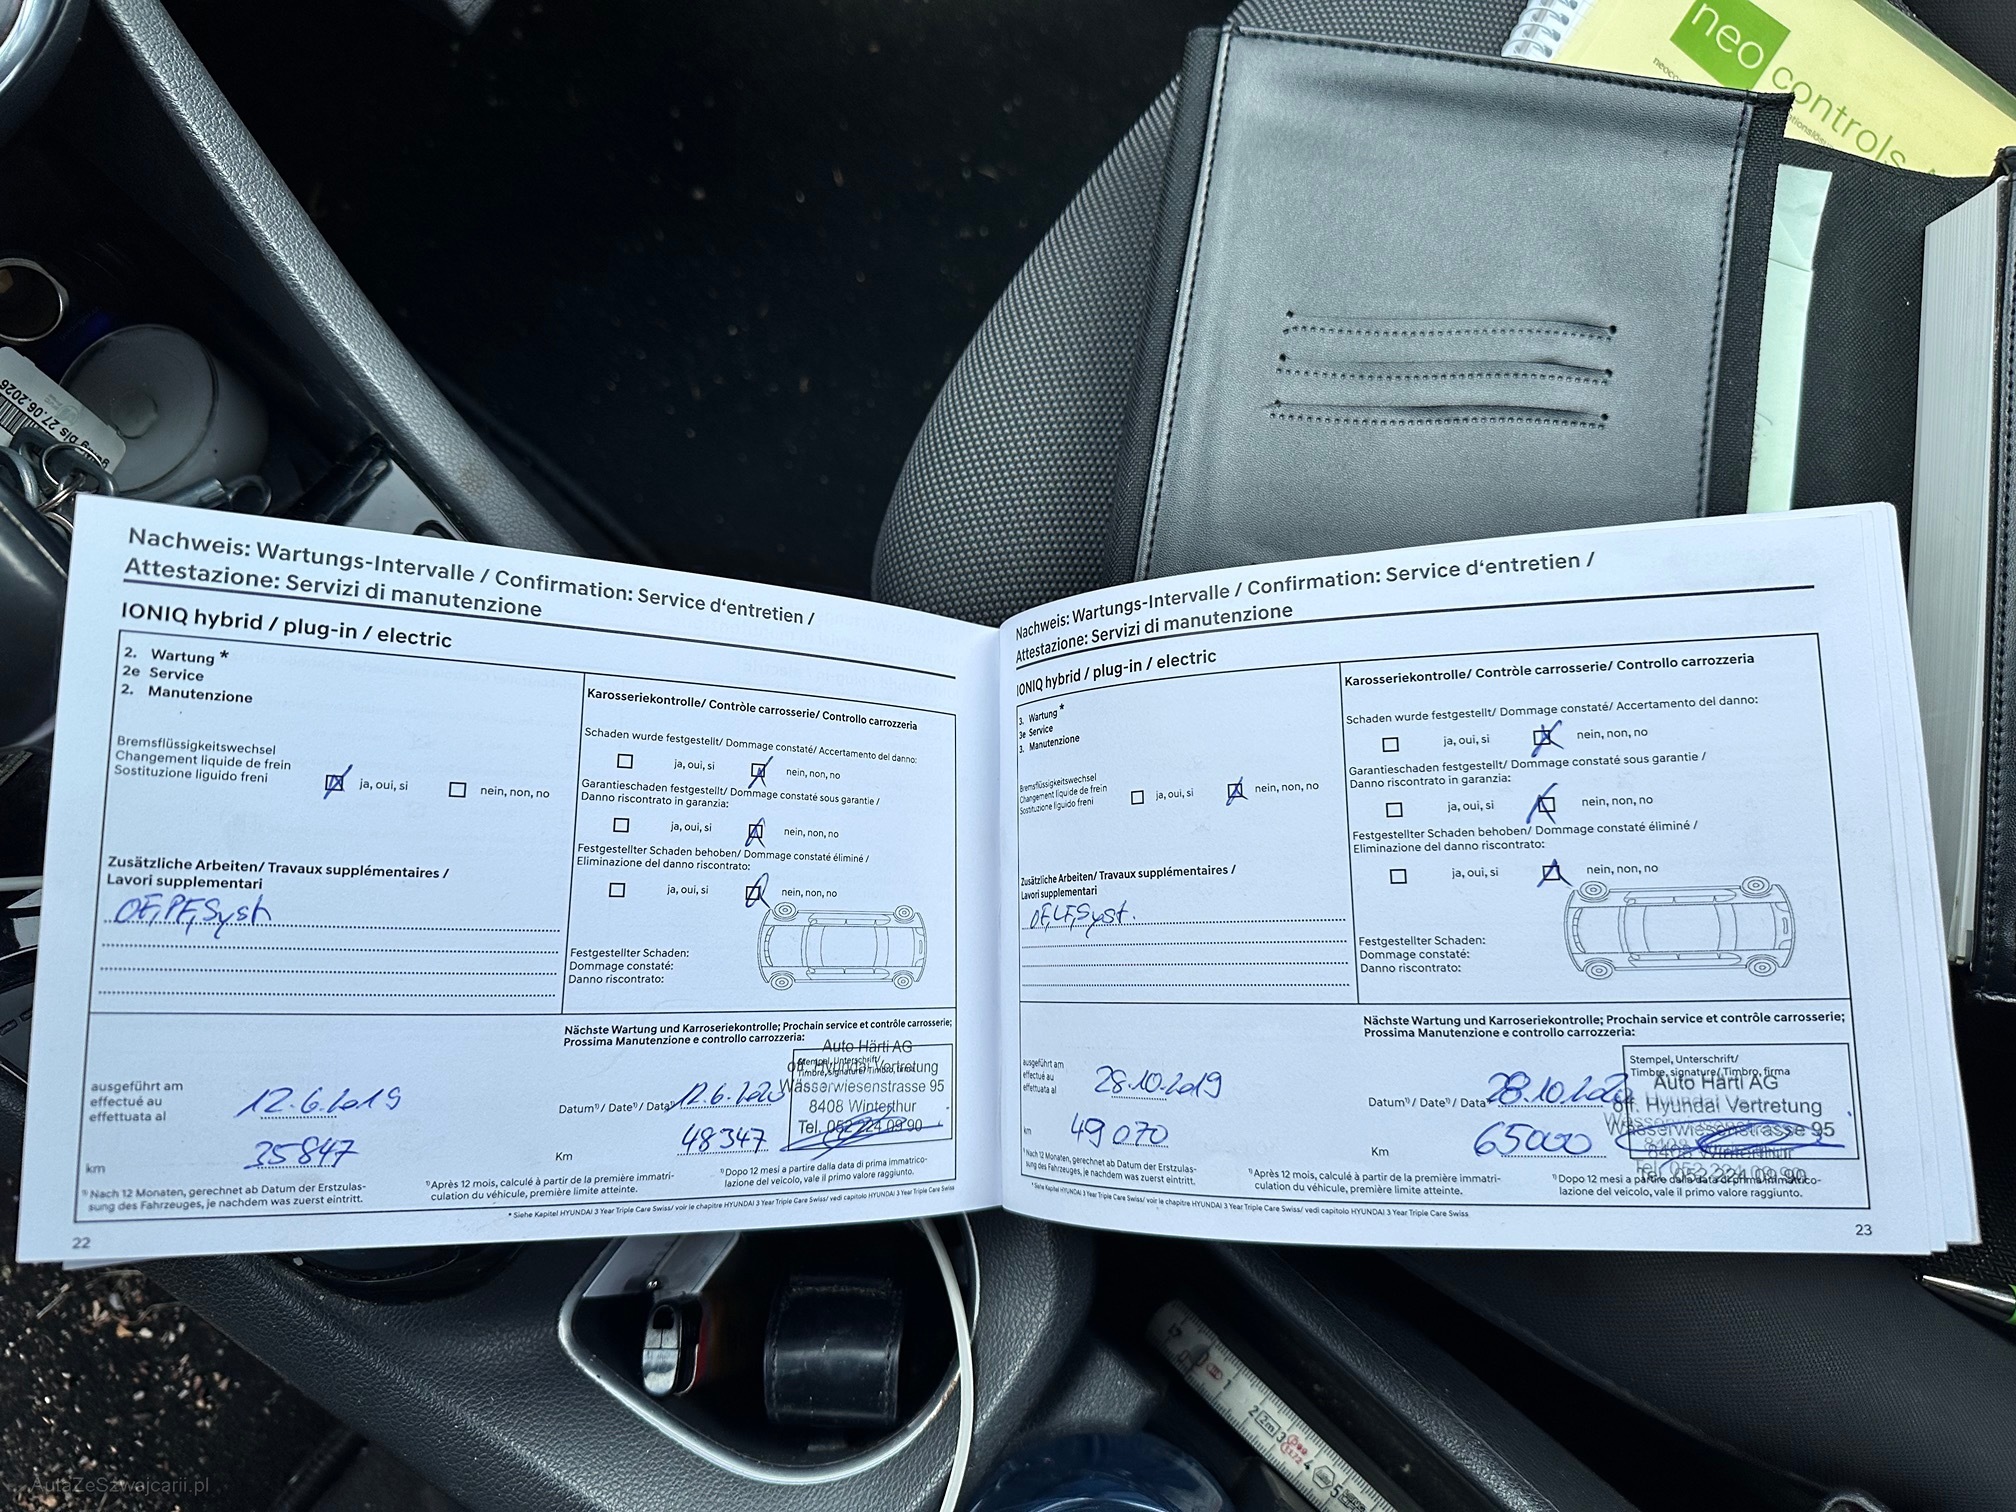 neo
controls
27.06.2026
Nachweis: Wartungs-Intervalle / Confirmation: Service d'entretien /
Attestazione: Servizi di manutenzione
IONIQ hybrid / plug-in / electric
2. Wartung *
2e Service
2. Manutenzione
Bremsflüssigkeitswechsel
Changement liquide de frein
Sostituzione liguido freni
ja, oui, si
nein, non, no
Zusätzliche Arbeiten/ Travaux supplémentaires /
Lavori supplementari
OF, PF, Syst
Karosseriekontrolle/ Contrôle carrosserie/ Controllo carrozzeria
Schaden wurde festgestellt/ Dommage constaté/ Accertamento del danno:
ja, oui, si
nein, non, no
Garantieschaden festgestellt/ Dommage constaté sous garantie /
Danno riscontrato in garanzia:
ja, oui, si
nein, non, no
Festgestellter Schaden behoben/ Dommage constaté éliminé /
Eliminazione del danno riscontrato:
ja, oui, si
nein, non, no
Festgestellter Schaden:
Dommage constaté:
Danno riscontrato:
ausgeführt am
effectué au
effettuata al
12.6.2019
km
35847
Nächste Wartung und Karroseriekontrolle; Prochain service et contrôle carrosserie;
Prossima Manutenzione e controllo carrozzeria:
Datum¹⁾ / Date¹⁾ / Data¹⁾
12.6.2020
Km
48347
Stempel, Unterschrift/
Timbre, signature/ Timbro, firma
Auto Härti AG
off. Hyundai Vertretung
Wässerwiesenstrasse 95
8408 Winterthur
Tel. 052 224 09 90
¹⁾ Nach 12 Monaten, gerechnet ab Datum der Erstzulas-
sung des Fahrzeuges, je nachdem was zuerst eintritt.
¹⁾ Après 12 mois, calculé à partir de la première immatri-
culation du véhicule, première limite atteinte.
¹⁾ Dopo 12 mesi a partire dalla data di prima immatrico-
lazione del veicolo, vale il primo valore raggiunto.
* Siehe Kapitel HYUNDAI 3 Year Triple Care Swiss/ voir le chapitre HYUNDAI 3 Year Triple Care Swiss/ vedi capitolo HYUNDAI 3 Year Triple Care Swiss
22
Nachweis: Wartungs-Intervalle / Confirmation: Service d'entretien /
Attestazione: Servizi di manutenzione
IONIQ hybrid / plug-in / electric
3. Wartung *
3e Service
3. Manutenzione
Bremsflüssigkeitswechsel
Changement liquide de frein
Sostituzione liguido freni
ja, oui, si
nein, non, no
Zusätzliche Arbeiten/ Travaux supplémentaires /
Lavori supplementari
OF, LF, Syst.
Karosseriekontrolle/ Contrôle carrosserie/ Controllo carrozzeria
Schaden wurde festgestellt/ Dommage constaté/ Accertamento del danno:
ja, oui, si
nein, non, no
Garantieschaden festgestellt/ Dommage constaté sous garantie /
Danno riscontrato in garanzia:
ja, oui, si
nein, non, no
Festgestellter Schaden behoben/ Dommage constaté éliminé /
Eliminazione del danno riscontrato:
ja, oui, si
nein, non, no
Festgestellter Schaden:
Dommage constaté:
Danno riscontrato:
ausgeführt am
effectué au
effettuata al
28.10.2019
km
49070
Nächste Wartung und Karroseriekontrolle; Prochain service et contrôle carrosserie;
Prossima Manutenzione e controllo carrozzeria:
Datum¹⁾ / Date¹⁾ / Data¹⁾
28.10.2020
Km
65000
Stempel, Unterschrift/
Timbre, signature/ Timbro, firma
Auto Härti AG
off. Hyundai Vertretung
Wässerwiesenstrasse 95
8408 Winterthur
Tel. 052 224 09 90
¹⁾ Nach 12 Monaten, gerechnet ab Datum der Erstzulas-
sung des Fahrzeuges, je nachdem was zuerst eintritt.
¹⁾ Après 12 mois, calculé à partir de la première immatri-
culation du véhicule, première limite atteinte.
¹⁾ Dopo 12 mesi a partire dalla data di prima immatrico-
lazione del veicolo, vale il primo valore raggiunto.
* Siehe Kapitel HYUNDAI 3 Year Triple Care Swiss/ voir le chapitre HYUNDAI 3 Year Triple Care Swiss/ vedi capitolo HYUNDAI 3 Year Triple Care Swiss
23
AutaZeSzwajcarii.pl